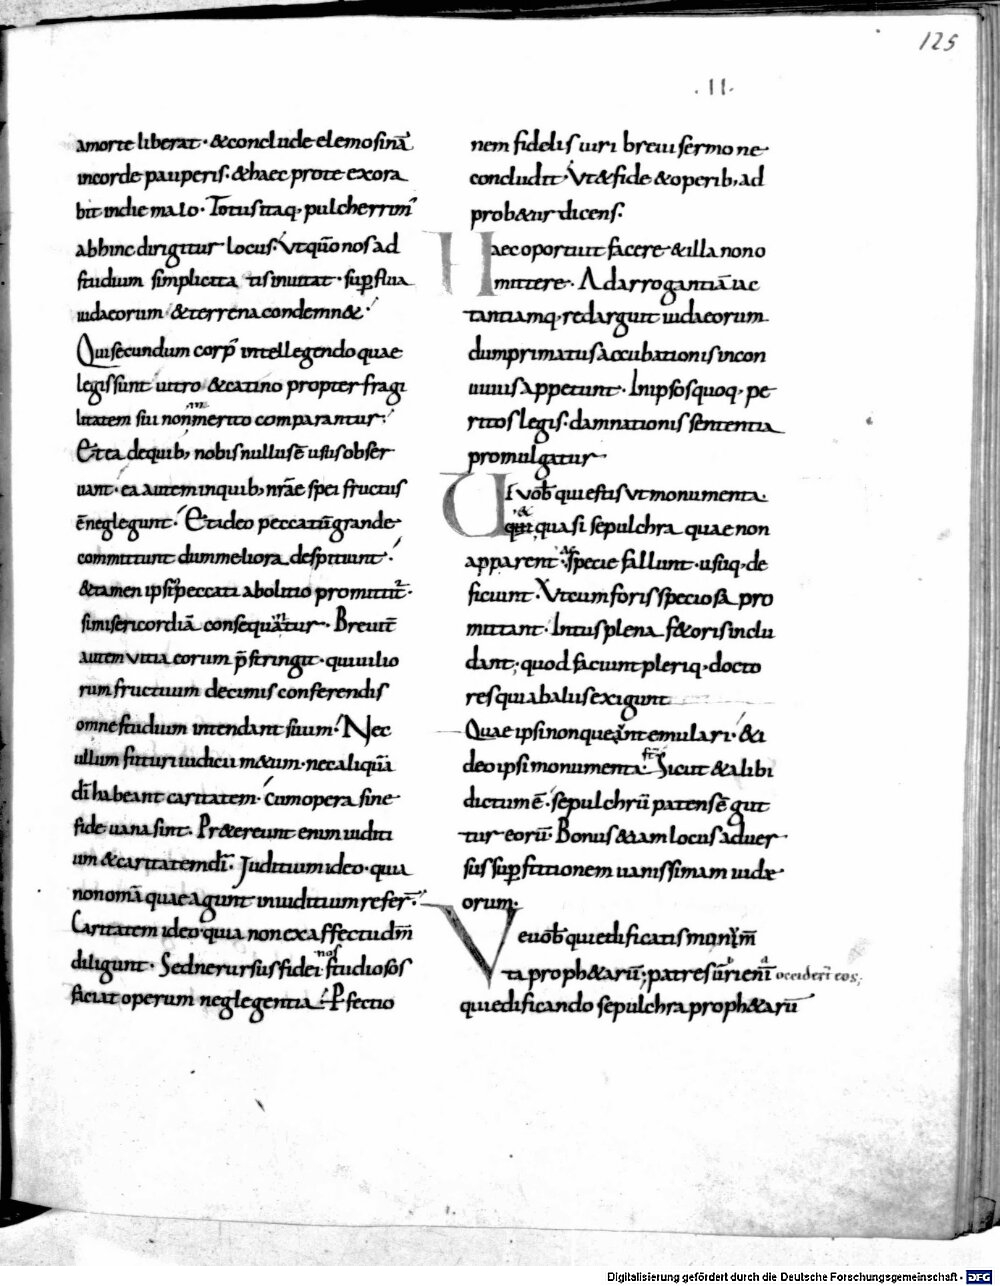 125
.II.
amorte liberat· &conclude elemosinā
incorde pauperis· &haec prote exora
bit indie malo· Totusitaq; pulcherrim'
abhinc dirigitur locus· Utqūo nos ad
studium simplicita tis inuitat· suꝑflua
iudaeorum &terrena condemn&·
Qui secundum corp' intellegendo quae
legis sunt uitro &catino propter fragi
litatem sui non merito comparantur·
Et ea dequib; nobis nullus ē usus obser
uant· ea autem inquib; nr̄ae spei fructus
ē neglegunt· Et ideo peccatū grande
committunt dum meliora despiciunt·
&tamen ipsi peccati abolitio promittit·
si misericordiā consequantur· Breuit̄
autem uitia eorum p̄stringit· qui uilio
rum fructuum decimis conferendis
omne studium intendant suum· Nec
ullum futuri iudicii m&um· nec aliquā
dī habeant caritatem· cum opera sine
fide uana sint· Pr&ereunt enim iuditi
um &caritatem dī· Juditium ideo· quia
non omā quae agunt iniuditium refer̄·
Caritatem ideo quia non exaffectu dm̄
diligunt· Sed ne rursus fidei nos studiosos
faciat operum neglegentia· ꝑfectio
nem fidelis uiri breui sermone
concludit· Ut &fide &operib; ad
prob&ur dicens·
Haec oportuit facere &illa non o
mittere· Ad arrogantiā iac
tantiamq; redarguit iudaeorum
dum primatus accubationis incon
uiuiis appetunt· Inipsos quoq; pe
ritos legis· damnationis sententia
promulgatur
Ui uob̄ qui estis ut monumenta·
&
qui quasi sepulchra quae non
apparent· Ac specie fallunt· usuq; de
ficiunt· Ut cum foris speciosa pro
mittant· Intus plena f&oris inclu
dant; quod faciunt pleriq; docto
res qui abaliis exigunt
Quae ipsi non queunt emulari· &i
deo ipsi monumenta· Sicut &alibi
dictum ē· sepulchrū patens ē gut
tur eorū· Bonus &iam locus aduer
sus suꝑstitionem uanissimam iudae
orum·
Ve uob̄ qui edificatis monim̄
ta proph&arū; patres ūri enī occider̄ eos;
qui edificando sepulchra proph&arū
Digitalisierung gefördert durch die Deutsche Forschungsgemeinschaft - DFG